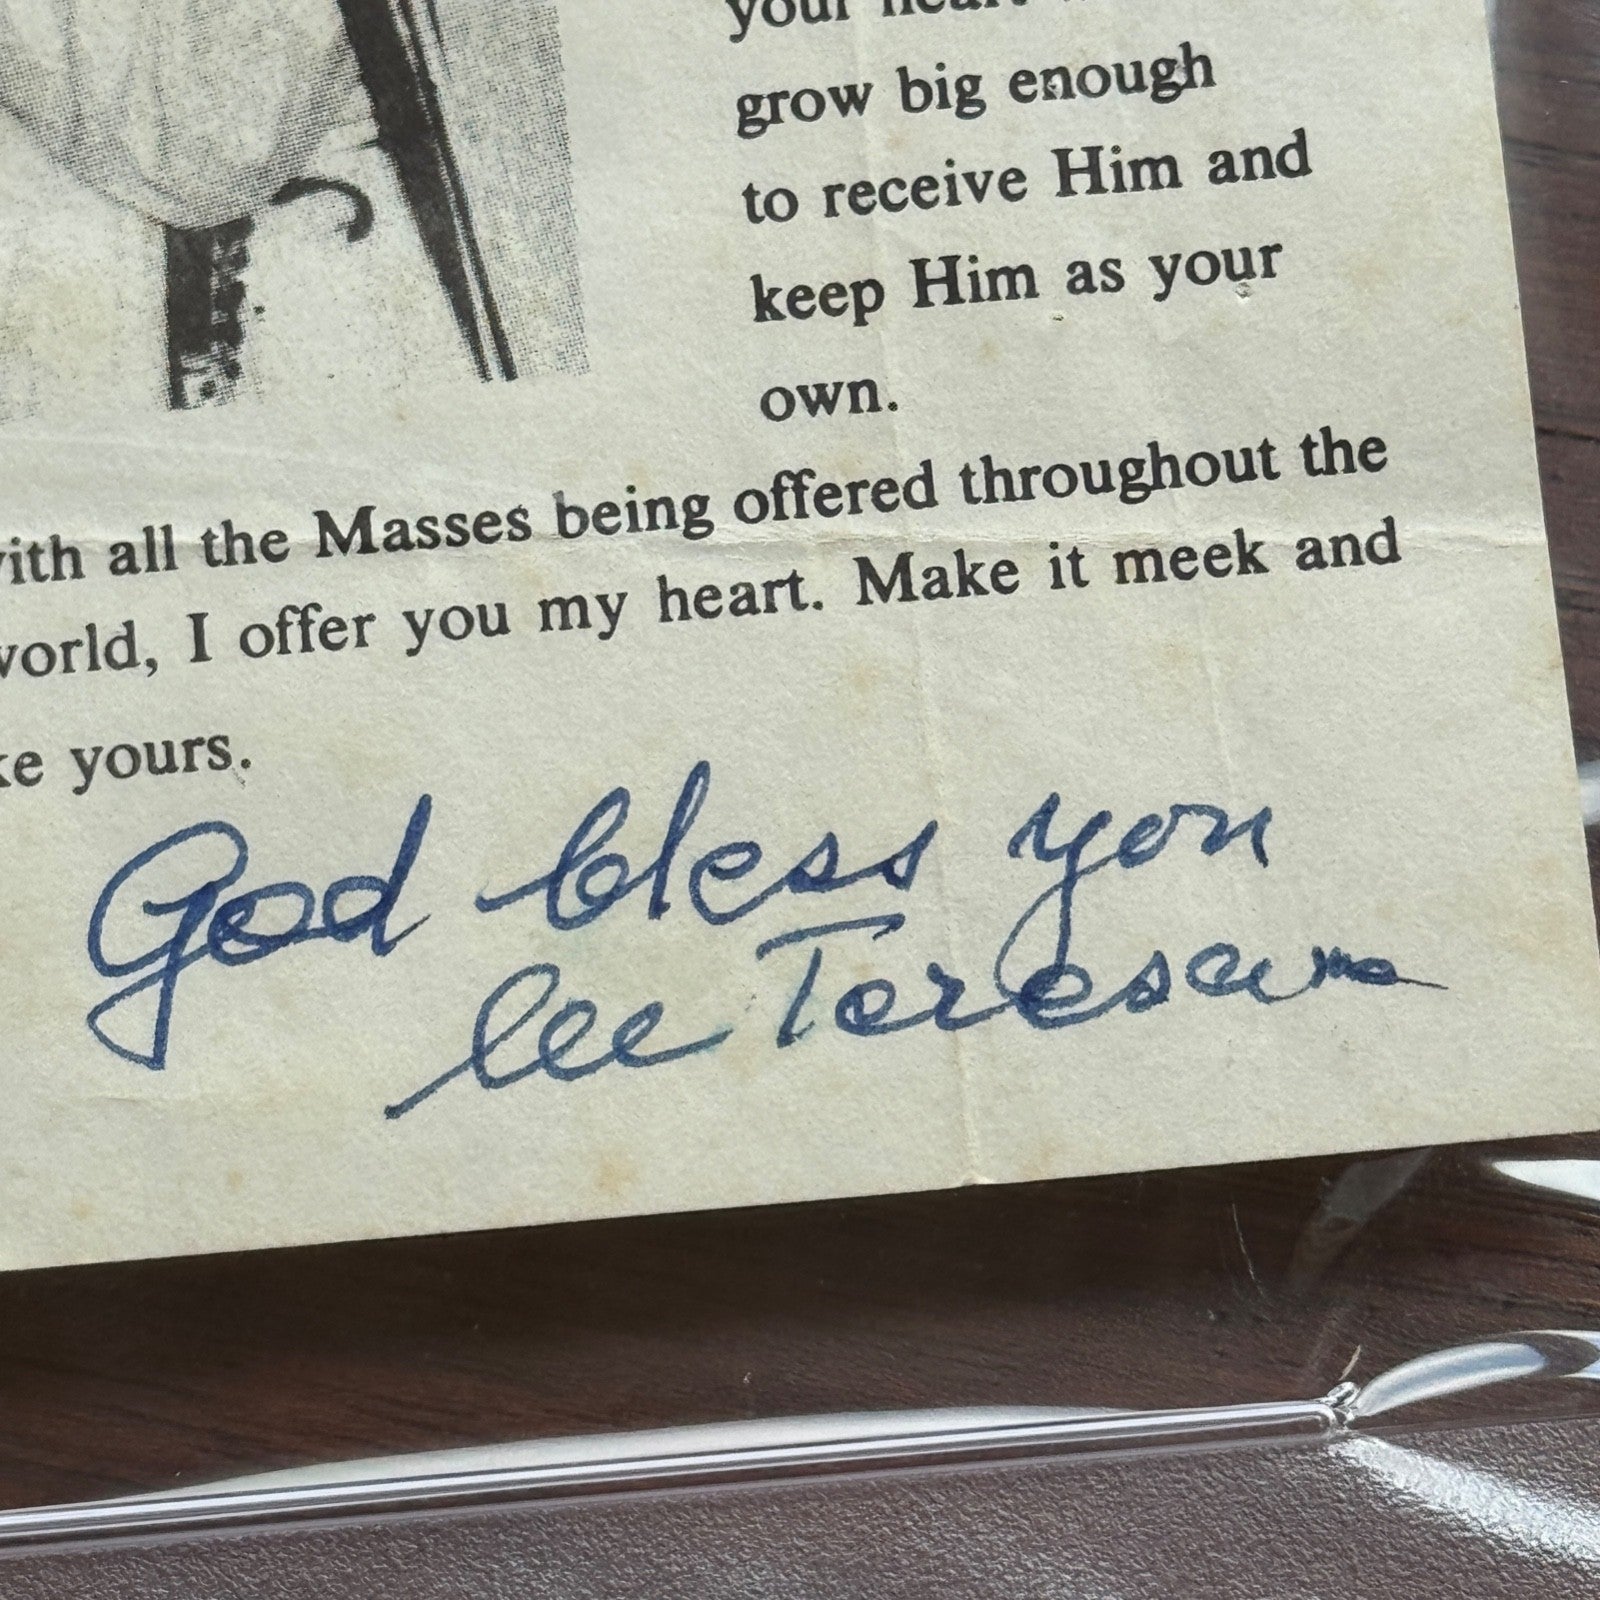 your heart
grow big enough
to receive Him and
keep Him as your
own.
ith all the Masses being offered throughout the
world, I offer you my heart. Make it meek and
ke yours.
God bless you
lee Teresa mc